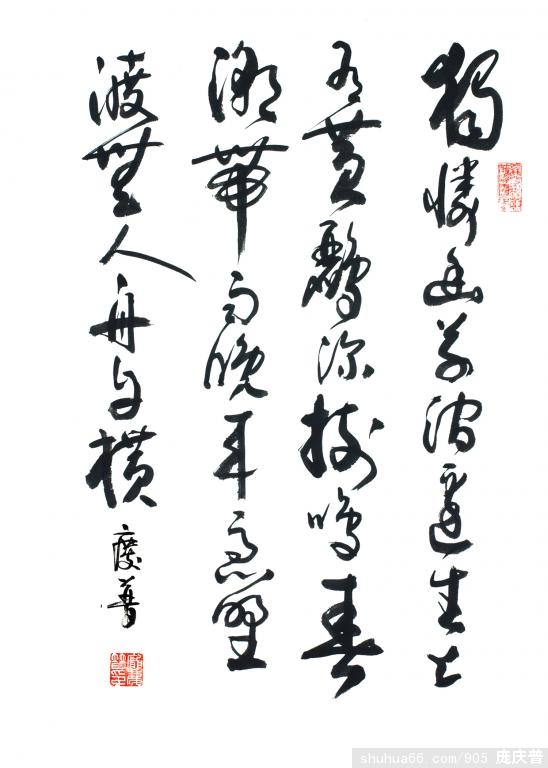 獨憐幽草澗邊生上
有黄鸝深樹鳴春
潮帶雨晚来急野
渡無人舟自横
慶普
shuhua66.com/905 庞庆普